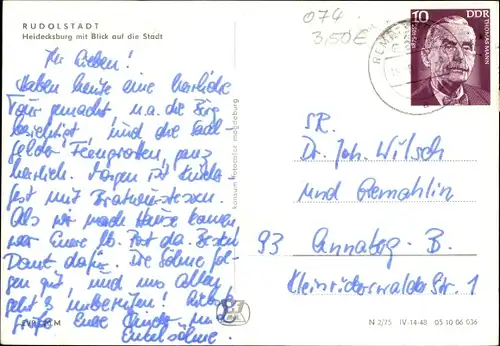 RUDOLSTADT
Heidecksburg mit Blick auf die Stadt
Ihr Lieben!
Haben heute eine herrliche
Tour gemacht u.a. die Burg
besichtigt und die Saal-
felder Feengrotten, ganz
herrlich. Morgen ist Kinder-
fest mit Bratwurstessen.
Als wir nach Hause kamen
war Eure lb. Post da. Besten
Dank dafür. Die Söhne fol-
gen gut, und uns allen
geht's unberufen!
grüßt Eure Kinder und
Enkelsöhne.
konsum fotocenter magdeburg
074
3,50€
10
DDR
THOMAS MANN
1875-1955
SR.
Dr. Joh. Wilsch
und Gemahlin
93 Annabg.-B.
Kleinrückerswalder Str. 1
N 2/75 IV-14-48 05 10 06 036